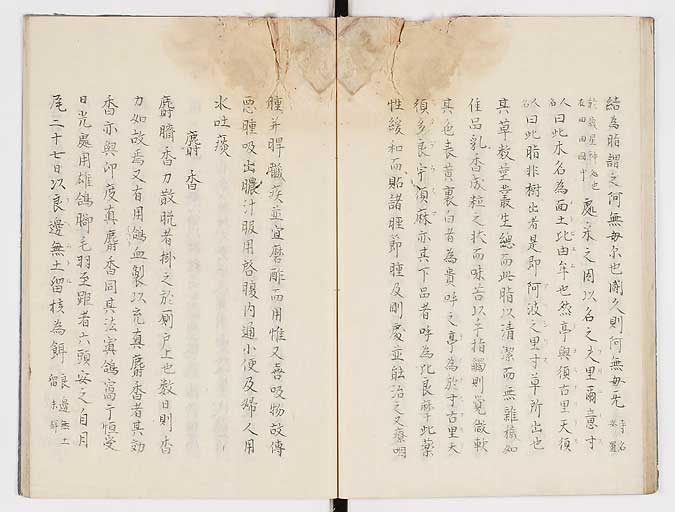 結為脂謂之阿無毋尔也閉久則阿無毋牟
處求之因以名之丈里爾意寸
人曰此木名為西土比由牟也然亭與須古里天須
人曰此脂非樹出者是即阿波之里寸草所出也
其草数莖叢生總而此脂以清潔而無雜穢如
佳品乳香成粒之状而味苦以手指觸則覚微軟
其色表黄裏白者為貴呼之亭為於寸古里天
須多良寸須麻亦其下品者呼為
此薬
性緩和而貼諸腫節腫及剛處並能治之又療咽
腫并脾臓痰並宜磨酢而用惟又喜吸物故傳
悪腫吸出膿汁服用啓腹内通小便及婦人用
水吐痰
麝香
麝臍香力散脱者掛之於厠戸上也数日則香
力如故焉又有用鴿血製以充真麝香者其功
香亦與印度真麝香同其法寘鴿窩于恒受
日光處用雄鴿脚毛羽至距者六頭安之自月
尾二十七日以良邊無土留核為餌 良邊無土留未詳